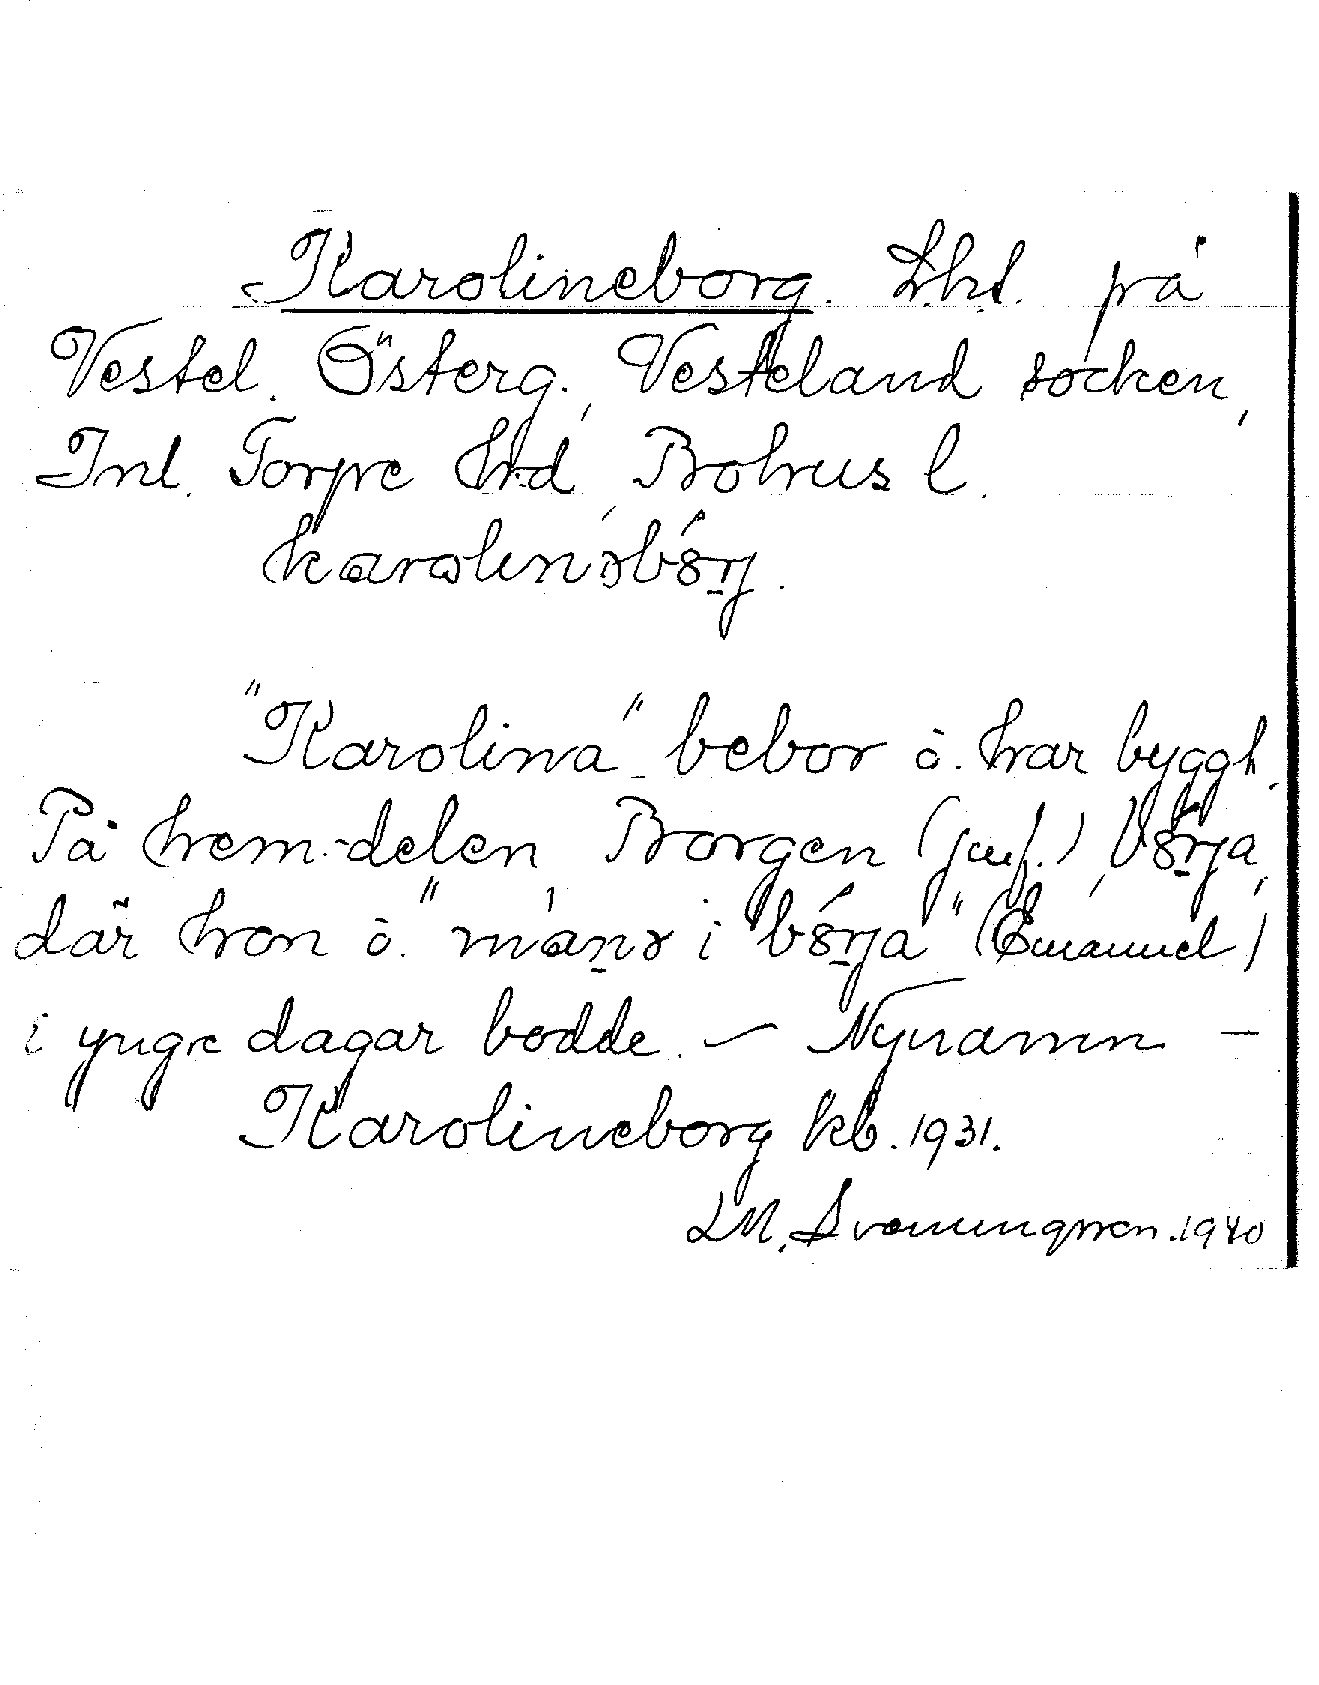 Karolineborg. Lht. på
Vestel. Österg., Vesteland socken,
Inl. Torpe hd, Bohus l.
"Karolina" bebor o. har byggt.
På hem-delen Borgen (jmf.),
där hon o. " i " (Emanuel)
i yngre dagar bodde. — Nynamn —
Karolineborg kb. 1931.
LM. Svenungsson. 1940